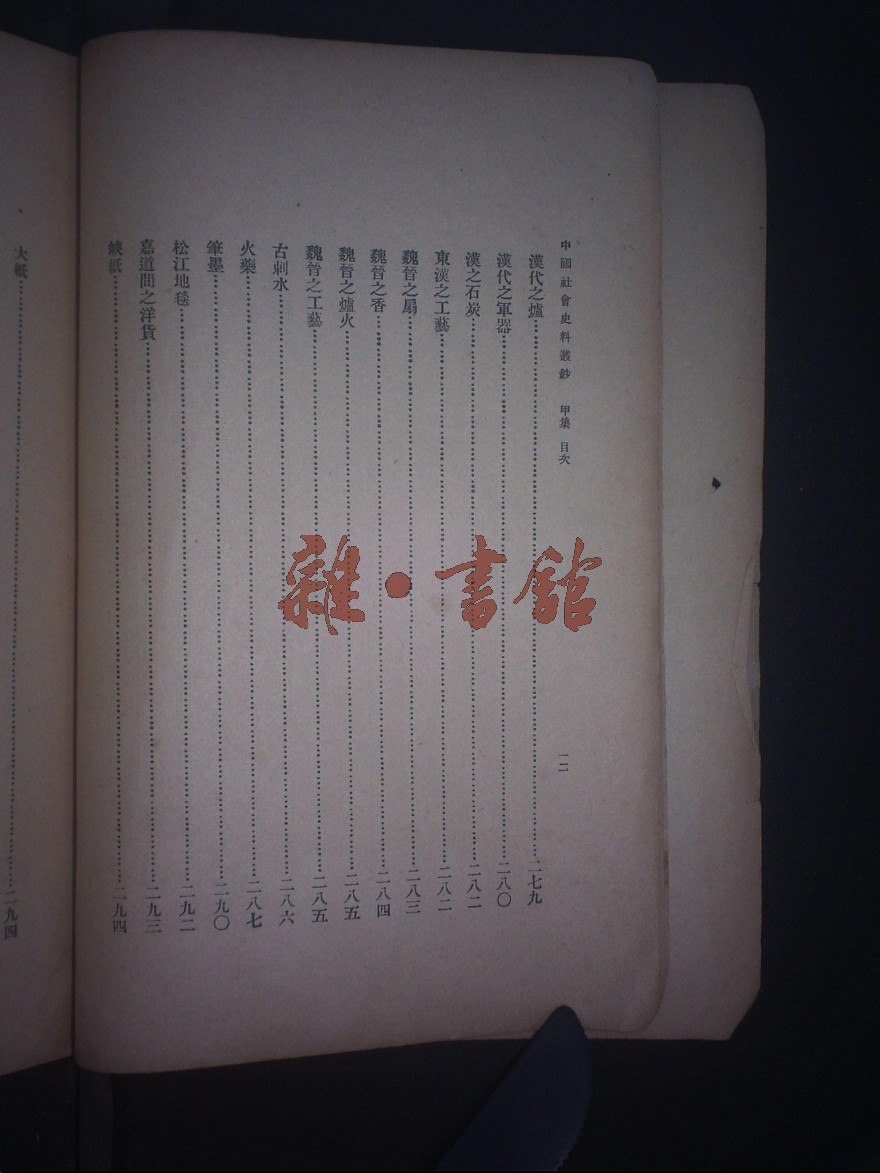 中國社會史料叢鈔 甲集 目次 一二
漢代之爐……二七九
漢代之軍器……二八〇
漢之石炭……二八二
東漢之工藝……二八二
魏晉之扇……二八三
魏晉之香……二八四
魏晉之爐火……二八五
魏晉之工藝……二八五
古刺水……二八六
火藥……二八七
筆墨……二九〇
松江地毯……二九二
嘉道間之洋貨……二九三
紙……二九四
大紙……二九四
雜·書館